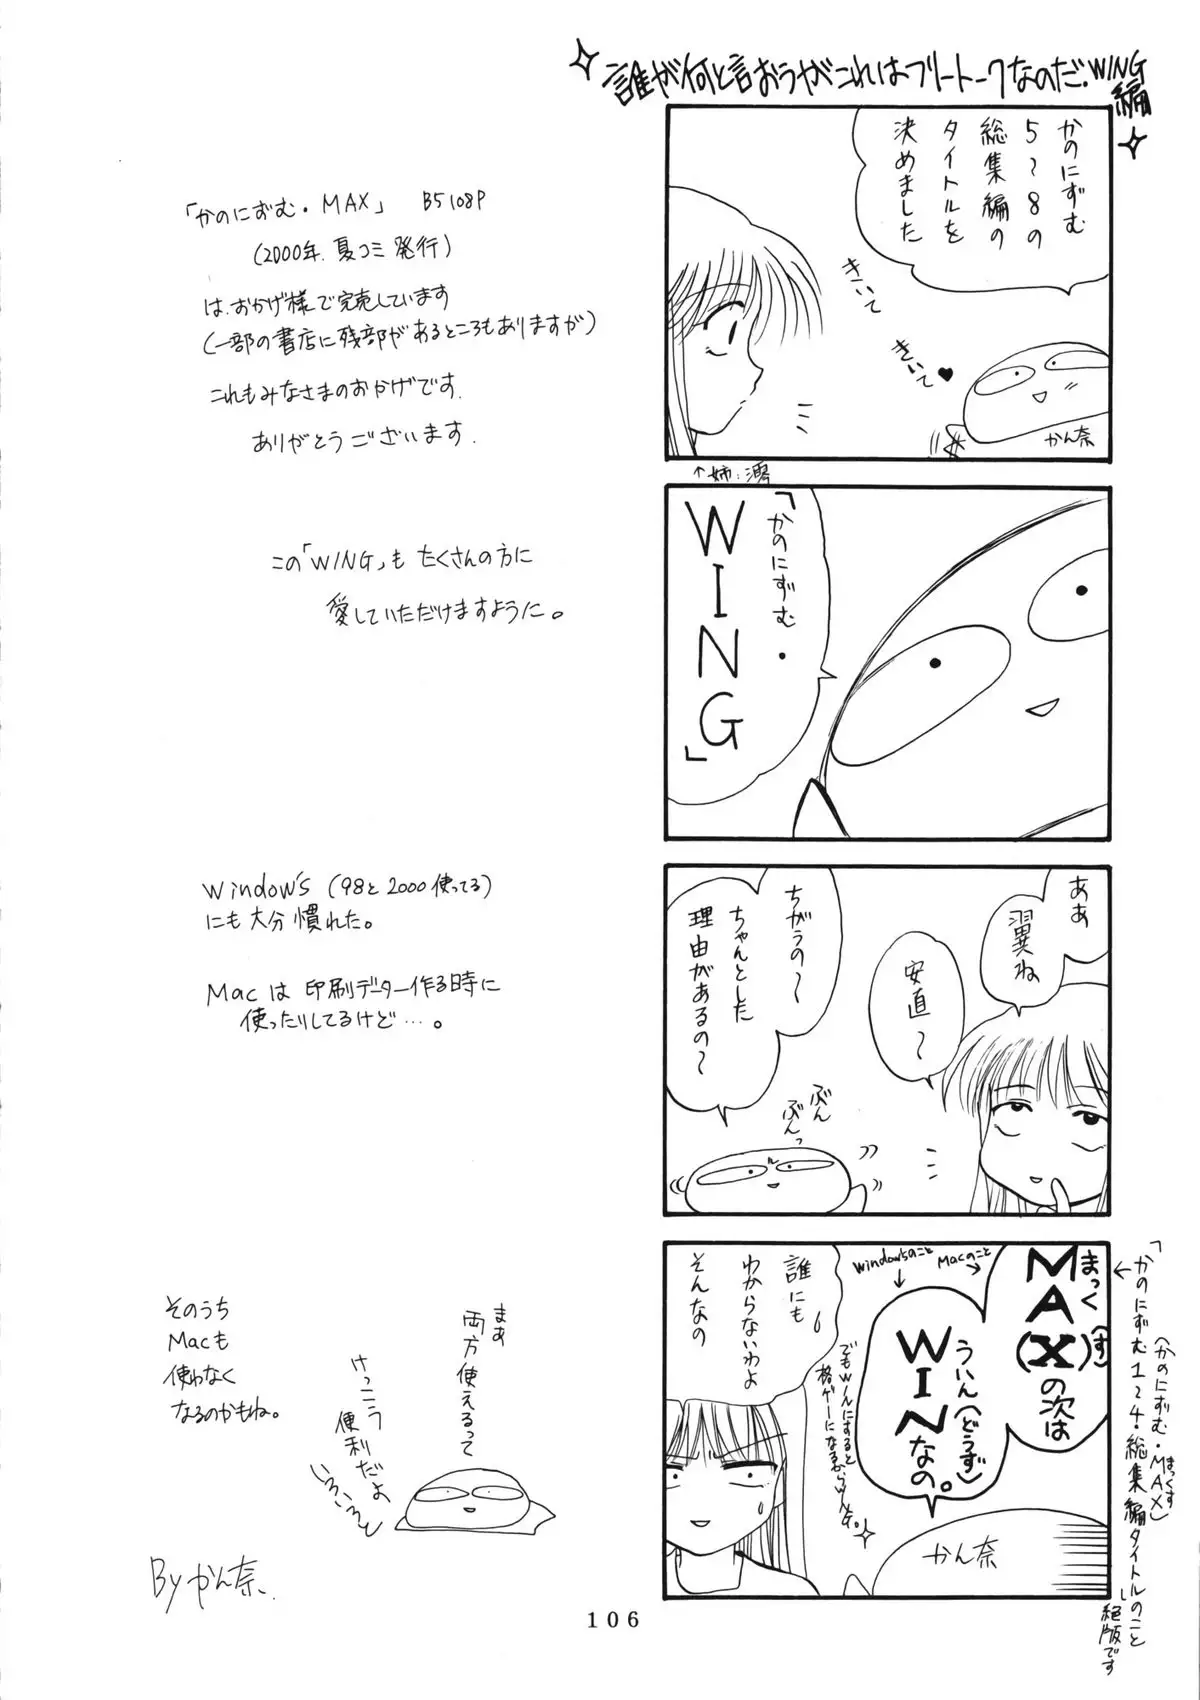 誰が何と言おうがこれはフリートークなのだ.WING
編
かのにずむ
5〜8の
総集編の
タイトルを
決めました
きいて
きいて♥
かん奈
↑姉:澪
「かのにずむ・
WING」
ああ
翼ね
安直〜
ちがうの〜
ちゃんとした
理由があるの〜
ぶん
ぶんっ
まっく(す)
MA(X)の次は
Macのこと
Windowsのこと
ういん(どうず)
WINなの。
でもWinにすると
格ゲーになるからWING。
誰にも
わからないわよ
そんなの
かん奈
(かのにずむ・MAX)
まっくす
「かのにずむ1〜4・総集編タイトルのこと
絶版です
「かのにずむ・MAX」 B5 108P
(2000年.夏コミ発行)
は.おかげ様で完売しています
(一部の書店に残部があるところもありますが)
これもみなさまのおかげです.
ありがとうございます.
この「WING」も たくさんの方に
愛していただけますように。
Window's (98と2000使ってる)
にも大分慣れた。
Macは 印刷データー作る時に
使ったりしてるけど…。
そのうち
Macも
使わなく
なるのかもね。
まあ
両方使えるって
けっこう
便利だよ
いろいろと
By かん奈.
106